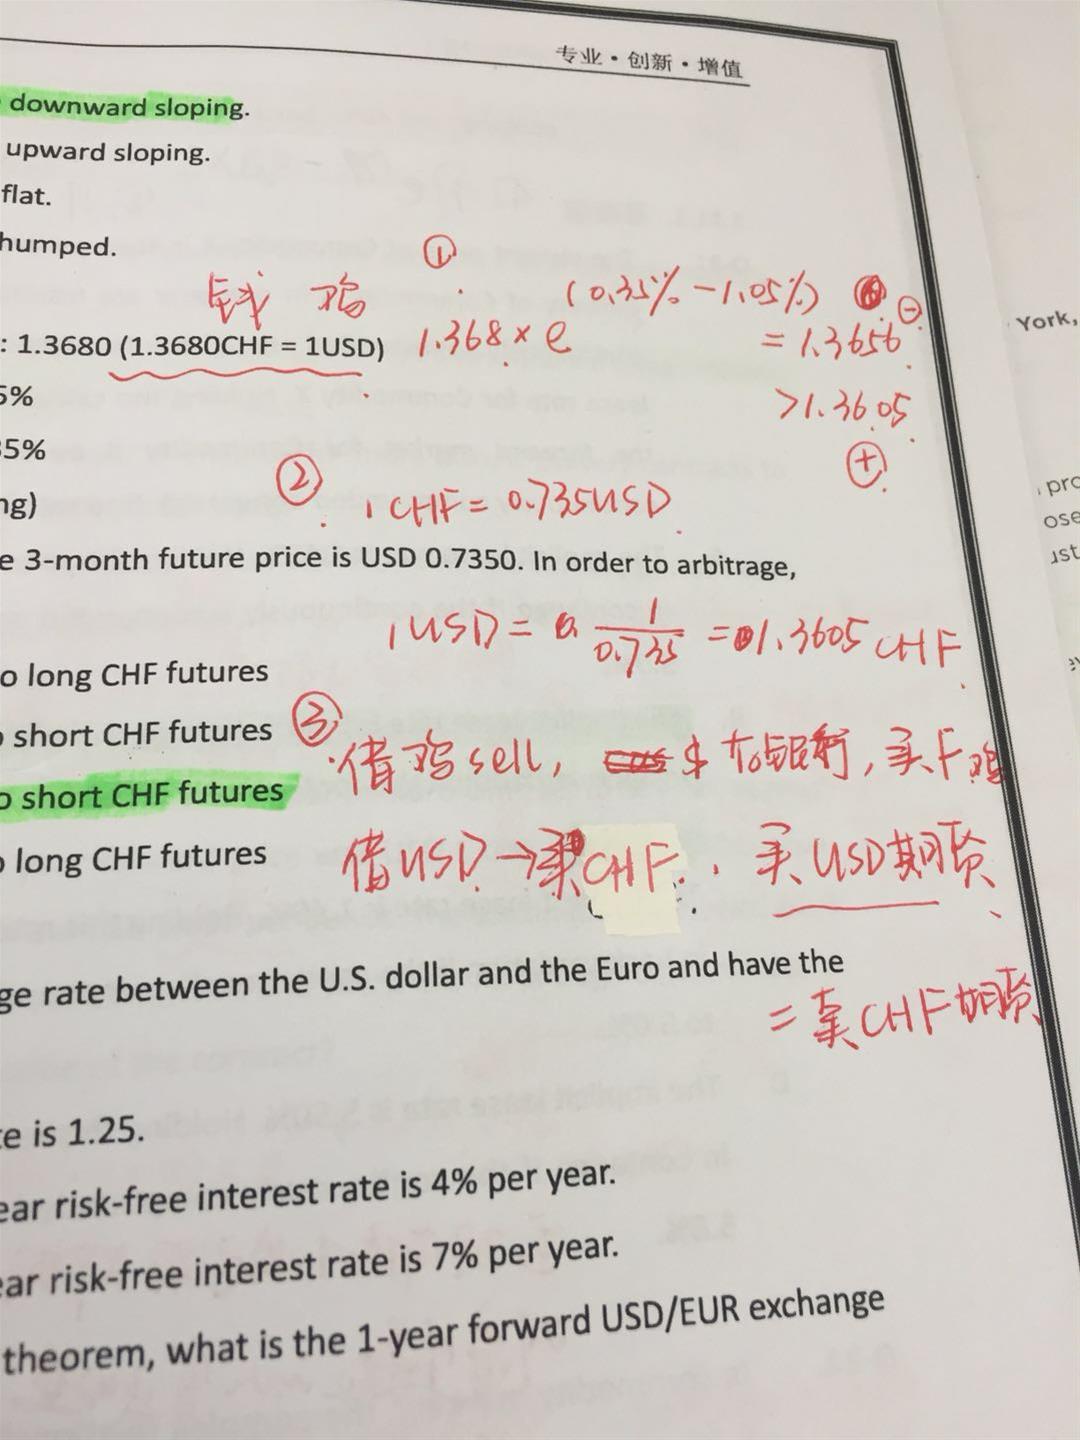 专业·创新·增值
downward sloping.
upward sloping.
flat.
humped.
①
钱 鸡
(0.35% - 1.05%)
: 1.3680 (1.3680CHF = 1USD) 1.368 × e = 1.3656
5%
> 1.3605
35%
②
ng)
1 CHF = 0.735USD
e 3-month future price is USD 0.7350. In order to arbitrage,
1 USD = 1/0.735 = 1.3605 CHF
o long CHF futures
③
short CHF futures
借鸡 sell, $ to银行, 买F鸡
o short CHF futures
long CHF futures
借USD → 买CHF. 买USD期货
ge rate between the U.S. dollar and the Euro and have the
= 卖CHF期货
te is 1.25.
ear risk-free interest rate is 4% per year.
ear risk-free interest rate is 7% per year.
theorem, what is the 1-year forward USD/EUR exchange
York,
pro
ose
ust